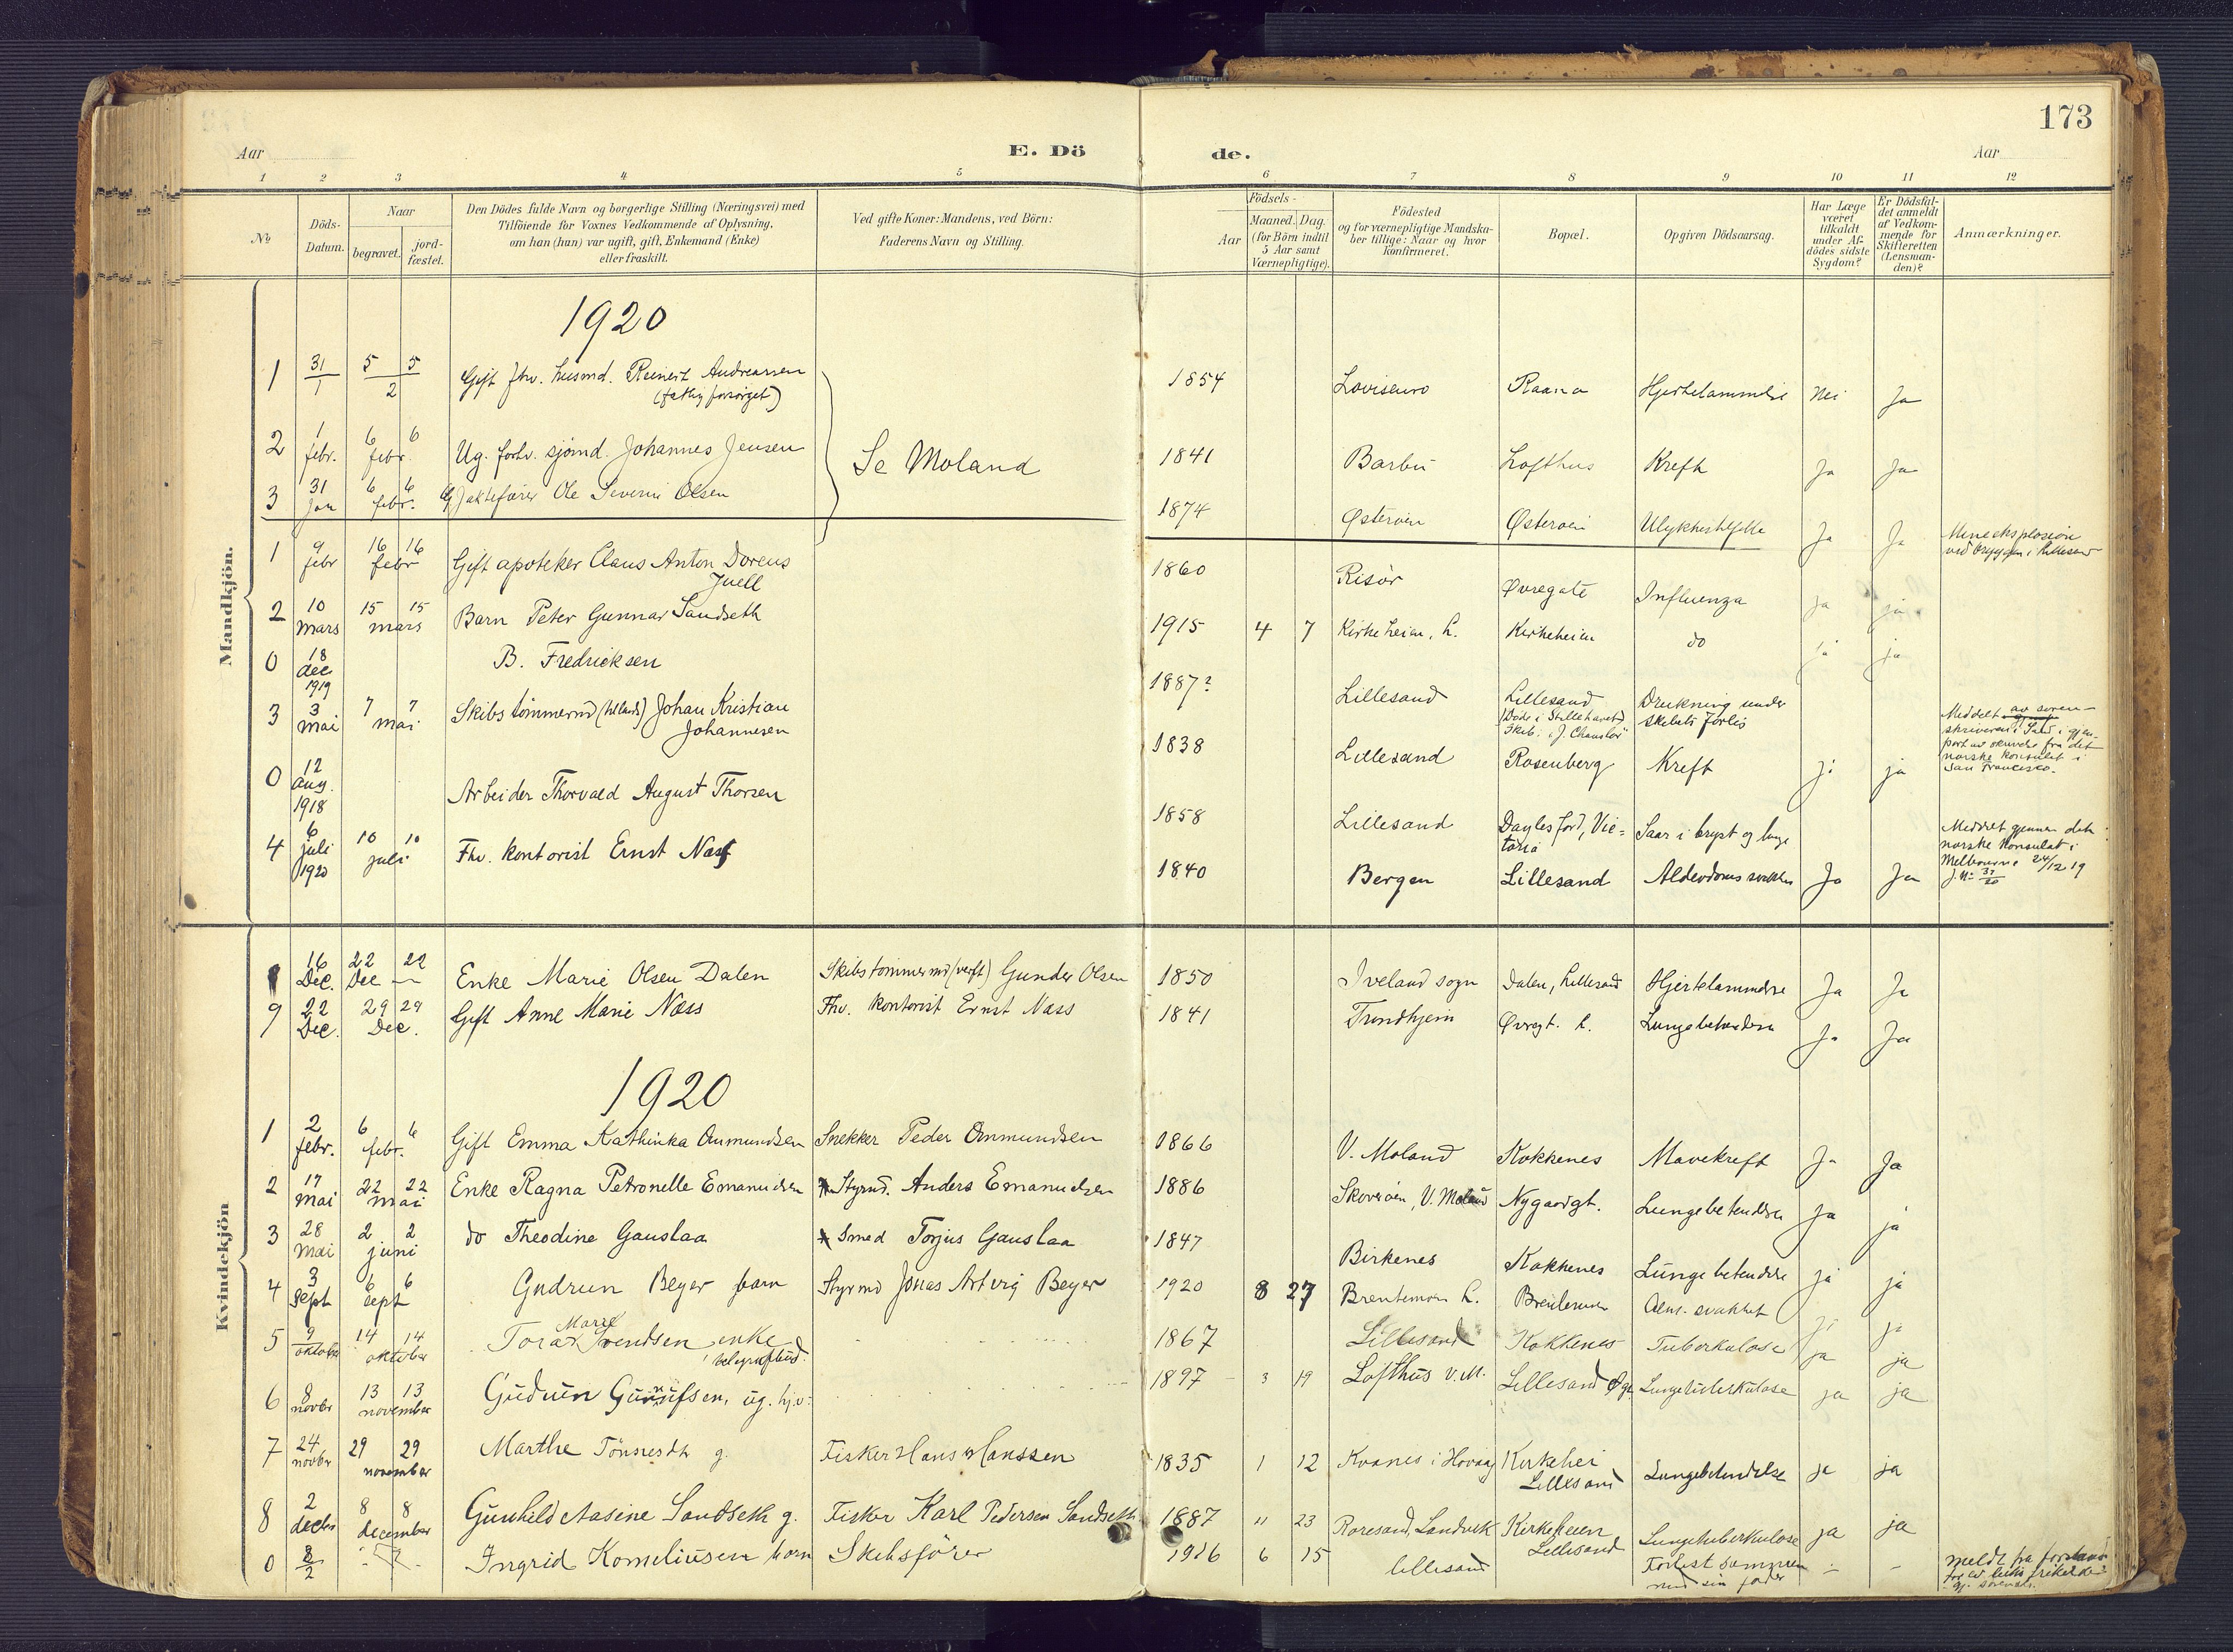 173
Aar
E. Dö
de.
Aar
1 2 3 4 5 6 7 8 9 10 11 12
№
Döds-
Datum.
Naar
begravet.
jord-
fæstet.
Den Dödes fulde Navn og borgerlige Stilling (Næringsvei) med
Tilföiende for Voxnes Vedkommende af Oplysning,
om han (hun) var ugift, gift, Enkemand (Enke)
eller fraskilt.
Ved gifte Koner: Mandens, ved Börn:
Faderens Navn og Stilling.
Födsels-
Aar
Maaned. Dag.
(for Börn indtil
5 Aar samt
Værnepligtige).
Födested
og for værnepligtige Mandska-
ber tillige: Naar og hvor
konfirmeret.
Bopæl.
Opgiven Dödsaarsag.
Har Læge
været
tilkaldt
under Af-
dödes sidste
Sygdom?
Er Dödsfal-
det anmeldt
af Vedkom-
mende for
Skifteretten
(Lensman-
den)?
Anmærkninger.
Mandkjön.
1920
1 31/1 5 5/2 Gift fhv. husmd. Reinert Andreassen 1854 Raana Hjertelammelse Nei Ja
2 1 febr. 6 6 febr. Ug. forhv. sjømd. Johannes Jensen Se Moland 1841 Barbu Lofthus Kreft Ja Ja
3 31 Jan 6 6 febr. G Jaktefører Ole Severin Olsen 1874 Østerøen Østerøen Ulykkestilfelle Ja Ja Mineeksplosion
ved bryggen i Lillesand
1 9 febr 16 16 febr Gift apoteker Claus Anton Doreus
Juell 1860 Risör Øvregate Influenza ja ja
2 10 mars 15 15 mars Barn Peter Gunnar Sandseth 1915 4 7 Kirkeheien, L. Kirkeheien do ja ja
0 18 dec 1919 B. Fredricksen 1887? Lillesand Lillesand
(Døde i Stillehavet) Drukning under
skibets forlis
Meddelt av soren-
skriveren i Sand i gjen-
part av skrivelse fra det
norske konsulat i
San Francisco.
3 3 mai 7 7 mai Skibstømmermd Johan Kristian
Johannesen 1838 Lillesand Rosenberg Kreft ja ja
0 12 aug. 1918 Arbeider Thorvald August Thorsen 1858 Lillesand Daylesford, Vic=
toria Saar i bryst og lunge
Meddelt gjennem det
norske konsulat i
Melbourne 24/12 19
4 6 juli 1920 10 10 juli Fhv. kontorist Ernst Næss 1840 Bergen Lillesand Alderdoms svakhet Ja Ja
Kvindekjön
16 Dec. 22 22 Dec Enke Marie Olsen Dalen Skibstømmermd (verft) Gunder Olsen 1850 Iveland sogn Dalen, Lillesand Hjertelammelse Ja Ja
9 22 Dec. 29 29 Dec. Gift Anne Marie Næss Fhv. kontorist Ernst Næss 1841 Trondhjem Øvregt. L. Lungebetændelse Ja Ja
1920
1 2 febr. 6 6 febr. Gift Emma Kathinka Onmundsen Snekker Peder Onmundsen 1866 V. Moland Kokkenes Mavekreft Ja Ja
2 17 mai 22 22 mai Enke Ragna Petronelle Emanuelsen Styrmd. Anders Emanuelsen 1886 Skoverøen, V. Moland Nygaardgt. Lungebetendelse Ja ja
3 28 mai 2 2 juni do Theodine Gauslaa Smed Torjus Gauslaa 1847 Birkenes Kokkenes Lungebetendelse ja ja
4 3 sept 6 6 sept Gudrun Beyer barn Styrmd Jonas Artvig Beyer 1920 8 27 Brentemoen L. Alm. svakhet ja ja
5 9 oktober 14 14 oktober Tora Marie Svendsen enke
telegrafbud. 1867 Lillesand Kokkenes Tuberkulose ja ja
6 8 novbr 13 13 november Gudrun Gunnufsen, ug. hj.v. 1897 3 19 Lofthus V.M. Lillesand Øgt. Lungetuberkulose ja ja
7 24 novbr 29 29 november Marthe Tønnesdtr g. Fisker Hans Hanssen 1835 1 12 Kvanes i Hovaag Kirkehei
Lillesand Lungebetendelse ja ja
8 2 decbr 8 8 december Gunhild Aasine Sandseth g. Fisker Karl Pedersen Sandseth 1887 11 23 Roresand, Landvik Kirkeheien
Lillesand Lungetuberkulose ja ja
0 8/2 Ingrid Korneliusen barn Skibsfører 1916 6 15 Lillesand Forlist sammen
med sin fader